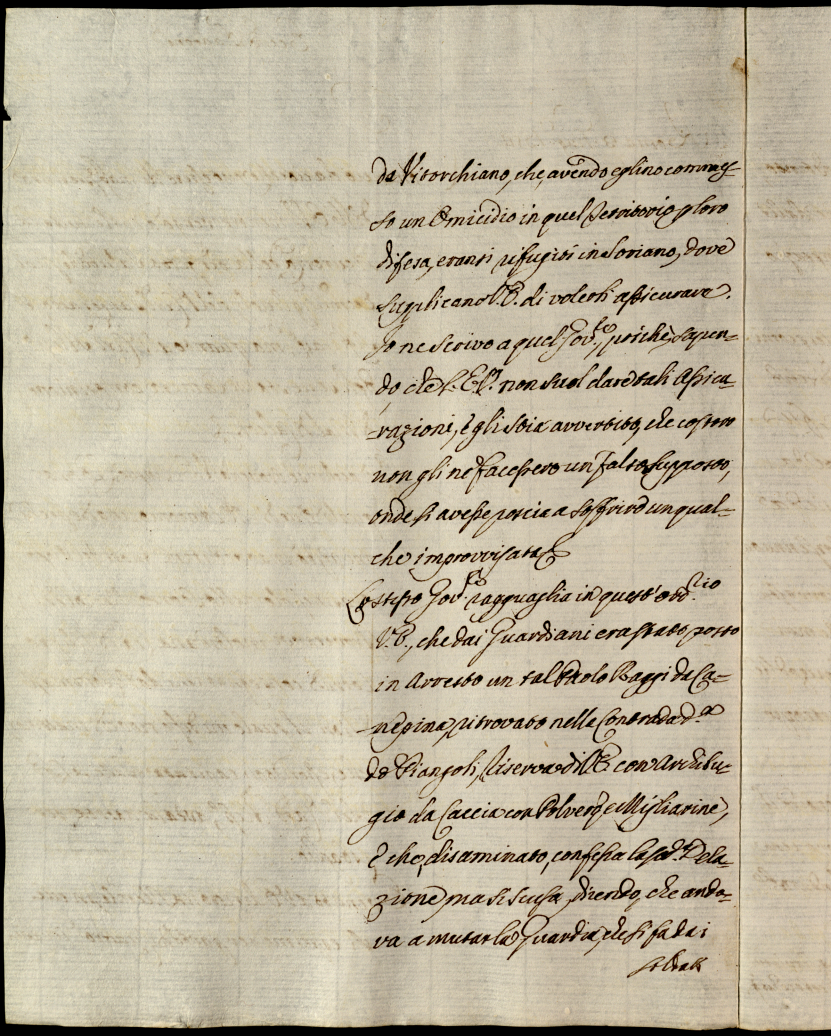 da Vitorchiano, che, avendo eglino commes=
so un Omicidio in quel Territorio p loro
difesa, eransi rifugiti in Soriano, dove
supplicano V.E. di volerli assicurare.
Io ne scrivo a quel Gov.re, poiche, sapen=
do che V. E. non suol dare tali Assicu=
razioni, egli stia avvertito, che costoro
non gli ne facessero un falso supposto,
onde si avesse poscia a soffrire un qual=
che improvvisata.
Lo stesso Gov.re ragguaglia in quest' ord.rio
V.E., che dai Guardiani era stato posto
in Arresto un tal Paolo Baggi da Ca=
nepina, ritrovato nella Contrada d.a
de Piangoli, Riserva di V.E. con Archibu=
gio da Caccia con Polvere, e Migliarine,
e che, disaminato, confessa la sud.a Dela=
zione, ma si scusa, dicendo, che anda=
va a mutar la Guardia, che si fa dai
soldati